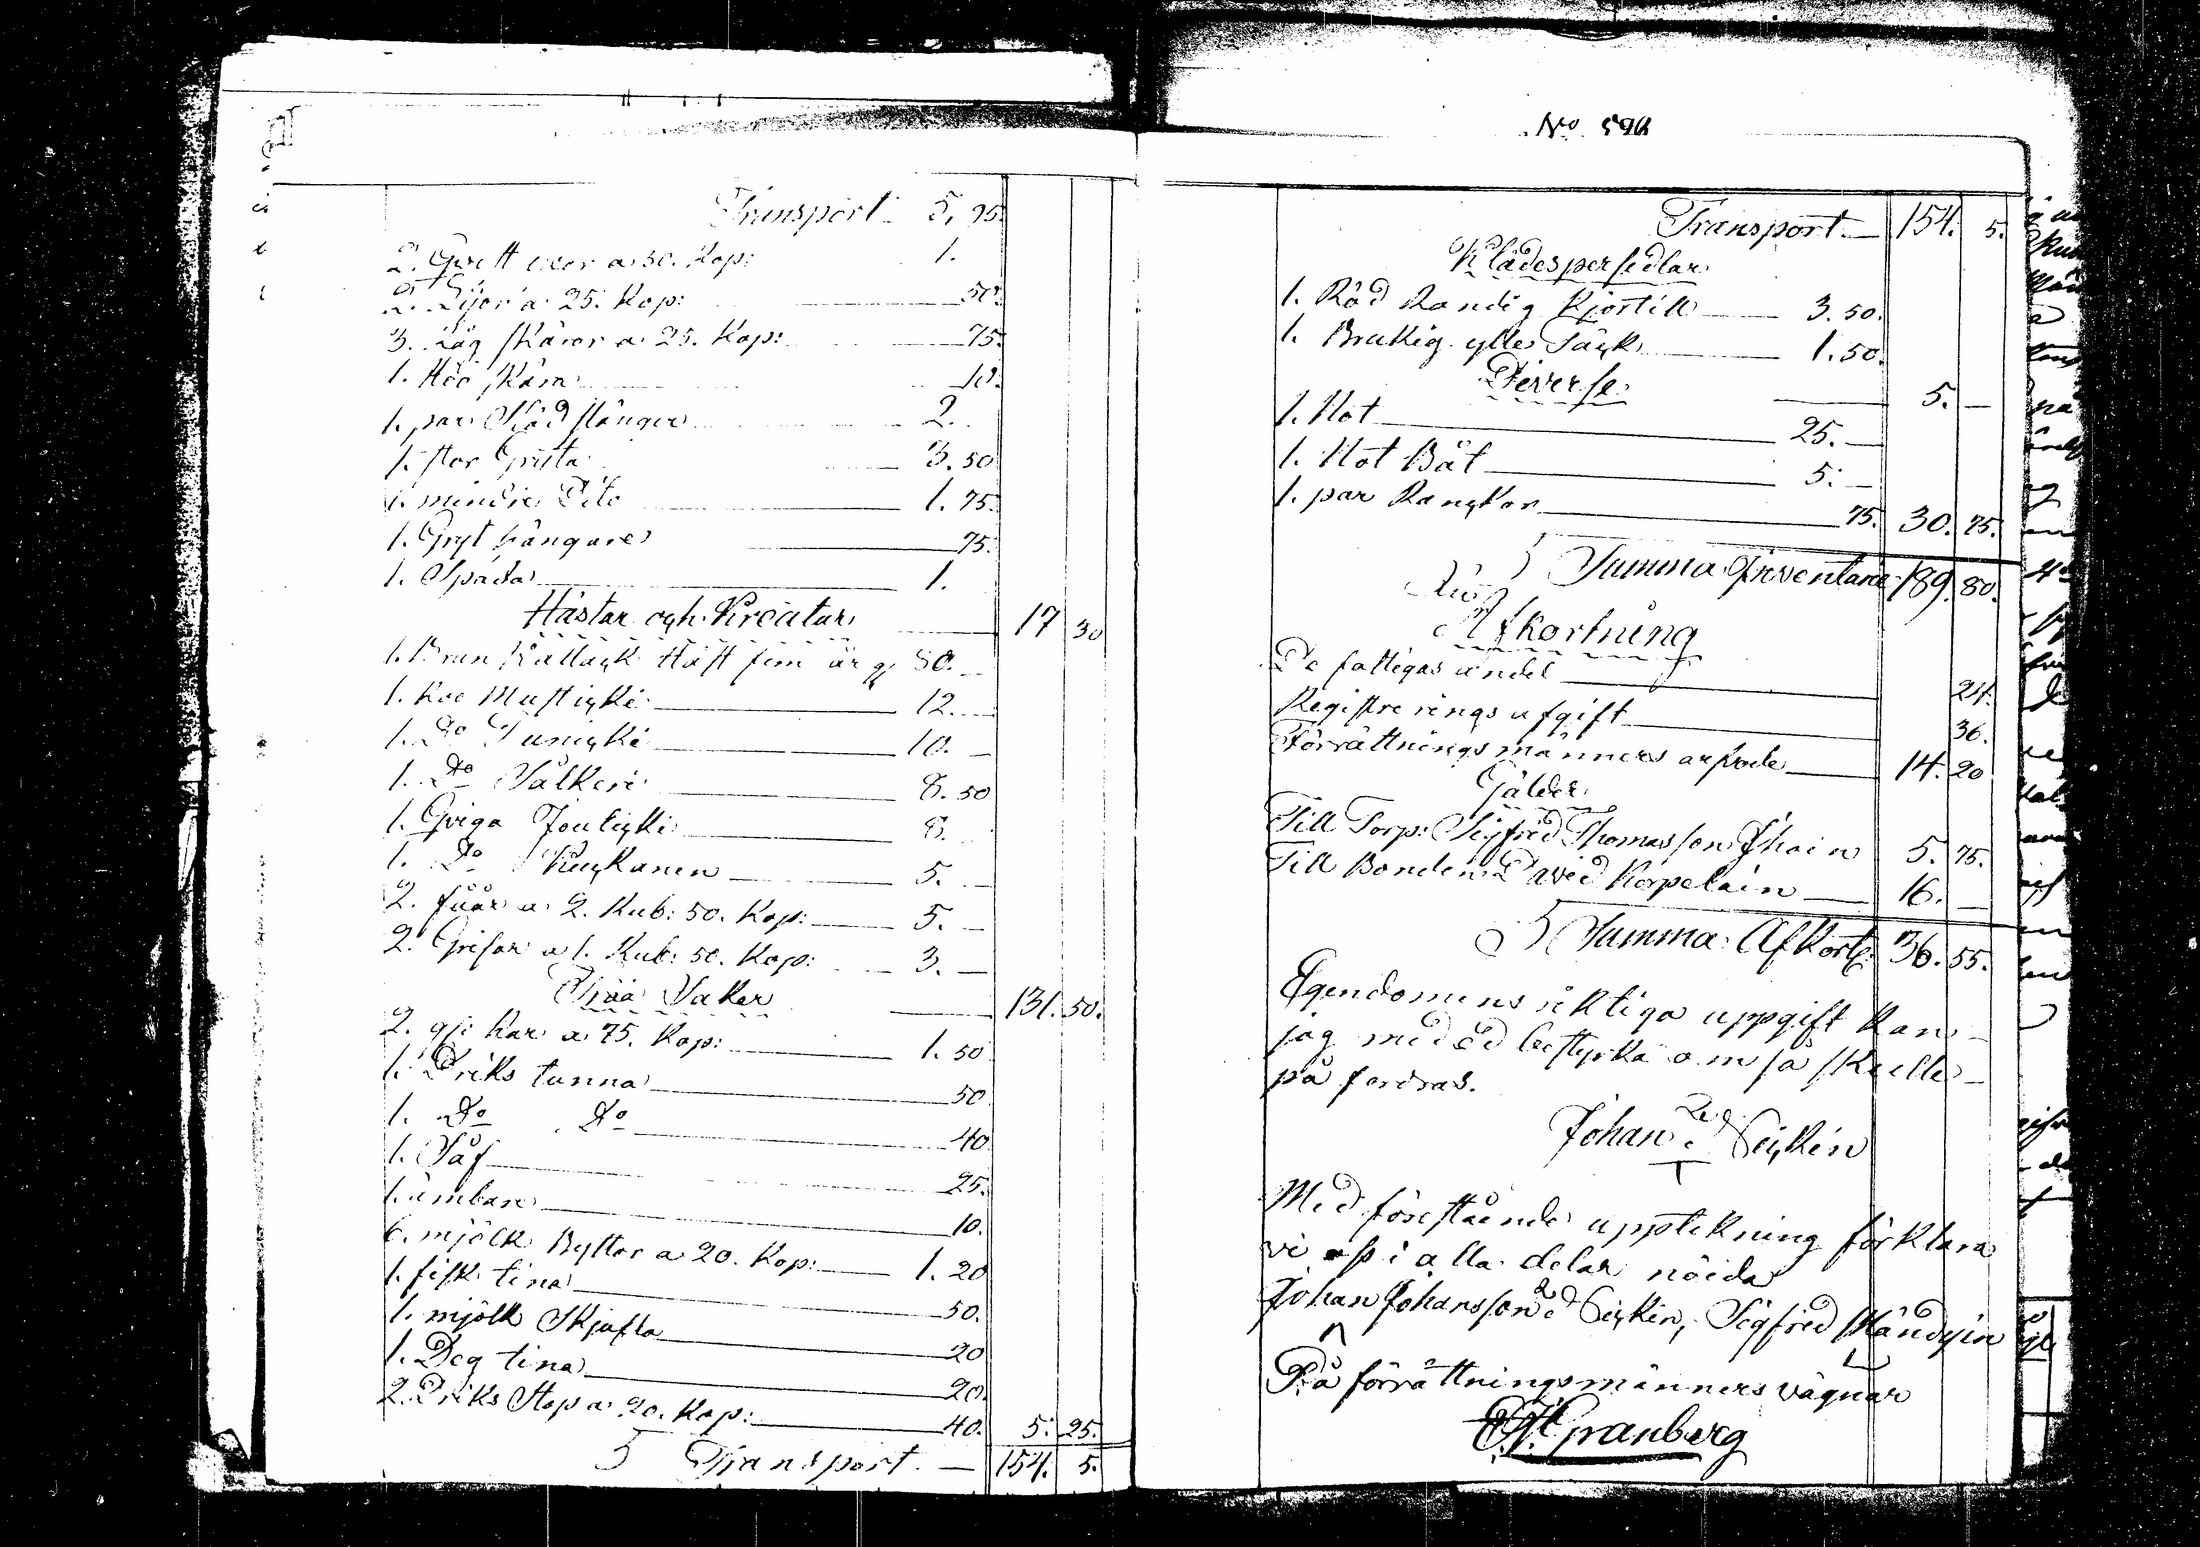 Transport 5. 95.
2. a 50. Kop: 1.
2. Lijor a 25. Kop: 50.
3. Skäror a 25. Kop: 75.
1. Höö 10.
1. par Stånger 2.
1. stor Gryta 3. 50
1. mindre Dito 1. 75.
1. Gryt hängare 75.
1. Spada 1.
Hästar och Kreatur 17 30
1. Brun Häst fem år 80. —
1. Koo Musticki 12. —
1. Do Tunicki 10. —
1. Do Sälkeri 8. 50
1. Qviga Jouticki 8. —
1. Do 5. —
2. fåår a 2. Rub: 50. Kop: 5. —
2. Grisar a 1. Rub: 50. Kop: 3. —
Trää Saker 131. 50.
2. Kar a 75. Kop: 1. 50
1. Driks tunna 50
1. Do Do 40
1. Såf 25.
1. ämbare 10.
6. mjölk Byttor a 20. Kop: 1. 20
1. fisk tina 50.
1. mjölk Skjufla 20
1. Deg tina 20.
2. Driks Stop a 20. Kop: 40. 5. 25.
Transport — 154. 5.
No 594
Transport — 154. 5.
Klädespersedlar
1. Röd Randig Kjortill 3. 50.
1. Brukig ylle Täck 1. 50.
Diverse 5. —
1. Not 25. —
1. Not Båt 5. —
1. par Rançkor 75. 30. 75.
Summa Inventarie 189. 80.
Afkortning
De fattigas andel 24.
Registrerings afgift 36.
Förrättningsmänners arfvode 14. 20
Gälder
Till Torp: Sigfred Thomasson Ihain 5. 75.
Till Bonden David Korpelain 16. —
Summa Afkortg 36. 55.
Egendomens riktiga uppgift kan
jag med ed bestyrka om så skulle
på fordras.
Johan Seicken
Med föreståënde uppteckning förklara
vi oss i alla delar nöida
Johan Johansson Seickin, Sigfred
På förrättningsmänners vägnar
Granberg